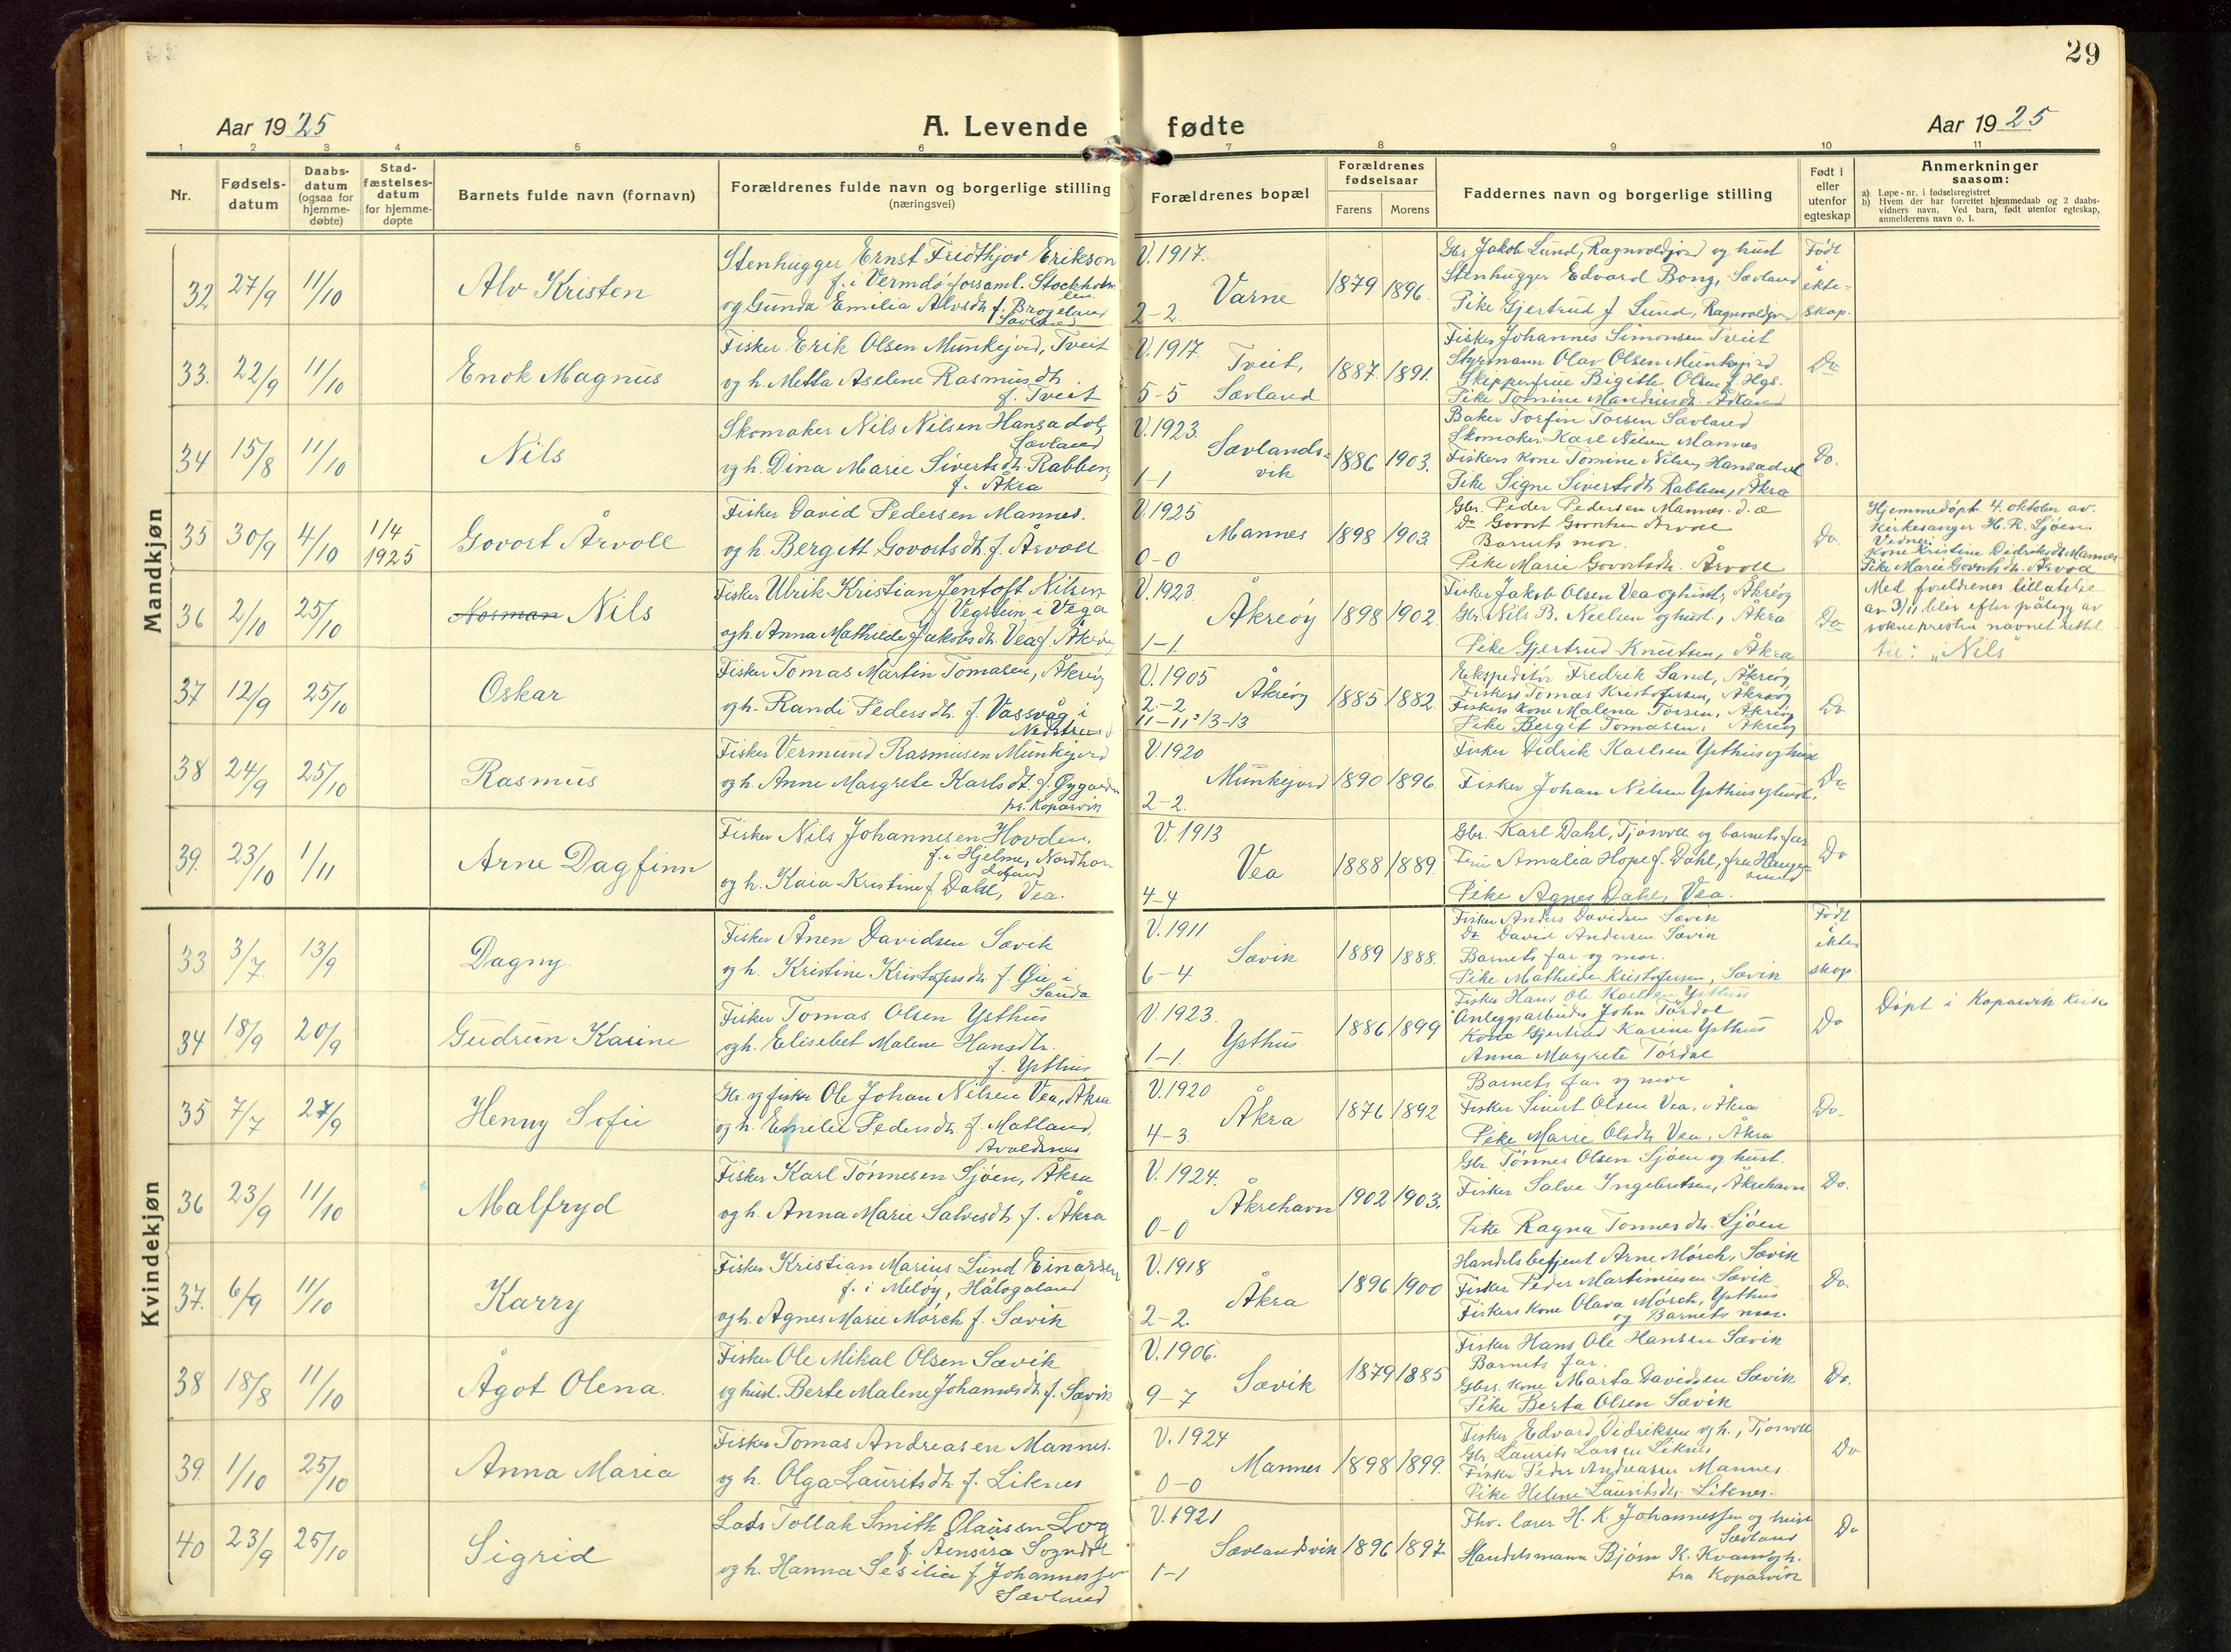 29
Aar 1925
A. Levende fødte
Aar 1925
1 2 3 4 5 6 7 8 9 10 11
Nr.
Fødsels-
datum
Daabs-
datum
(ogsaa for
hjemme-
døbte)
Stad-
fæstelses-
datum
for hjemme-
døpte
Barnets fulde navn (fornavn)
Forældrenes fulde navn og borgerlige stilling
(næringsvei)
Forældrenes bopæl
Forældrenes
fødselsaar
Farens
Morens
Faddernes navn og borgerlige stilling
Født i
eller
utenfor
egteskap
Anmerkninger
saasom:
a) Løpe-nr. i fødselsregistret
b) Hvem der har forrettet hjemmedaab og 2 daabs-
vidners navn. Ved barn, født utenfor egteskap,
anmelderens navn o. l.
Mandkjøn
32 27/9 11/10 Alv Kristen
Stenhugger Ernst Fridthjov Erikson
f. i Vermdö forsaml. Stockholm
len
og Gunda Emilia Alvsdtr. f. Brogeland
Sævland
V. 1917.
Varne
2-2
1879 1896.
Gbr. Jakob Lund, Ragnvoldjord og hust
Stenhugger Edvard Bong, Sævland
Pike Gjertrud J. Lund, Ragnvoldjord
Født
i
ekte-
skap.
33. 22/9 11/10 Enok Magnus
Fisker Erik Olsen Munkejord, Tveit
og h. Metta Aselene Rasmusdtr.
f. Tveit
V. 1917.
Tveit,
5-5 Sævland
1887. 1891.
Fisker Johannes Simonsen Tveit
Styrmann Olav Olsen Munkejord
Skipperfrue Bigitte Olsen f. Hgs.
Pike Tomine Mandiusdt. Ådland
Do
34 15/8 11/10 Nils
Skomaker Nils Nilsen Hansadal,
Sævland
og h. Dina Marie Sivertsdtr. Rabben,
f. Åkra
V. 1923.
Sævlands-
vik
1-1
1886 1903.
Baker Torfin Torsen Sævland
Skomaker Karl Nilsen Mannes
Fiskers kone Tomine Nilsen Hansadal
Pike Signe Sivertsdtr. Rabben, Åkra
Do.
35 30/9 4/10 1/4
1925 Govort Årvoll
Fisker David Pedersen Mannes.
og h. Bergitt Govortsdtr. f. Årvoll
V. 1925
Mannes
0-0
1898 1903.
Gbr. Peder Pedersen Mannes. d. æ
Do Govort Govortsen Årvoll
Barnets mor.
Pike Marie Govortsdtr. Årvoll
Do.
Hjemmedøpt 4. oktober av.
kirkesanger H. R. Sjøen.
Vidner:
Kone Kristine Didriksdt. Mannes
Pike Marie Govortsdtr. Årvoll
36 2/10 25/10 Norman Nils
Fisker Ulrik Kristian Jentoft Nilsen
f. Vegstein i Vega
og h. Anna Mathilde Jakobsdtr. Vea f. Åkreøy
V. 1923
Åkreøy
1-1
1898 1902
Fisker Jakob Olsen Vea og hust, Åkreøy
Gbr. Nils B. Neelsen og hust., Åkra
Pike Gjertrud Knutsen, Åkra
Do
Med foreldrenes tillatelse
av 3/11 blir efter pålegg av
sokneprestn navnet rettet
til: „Nils"
37 12/9 25/10 Oskar
Fisker Tomas Martin Tomasen, Åkreøy
og h. Randi Pedersdtr. f. Vassvåg, i
Nedstrand
V. 1905
Åkreøy
2-2
11-11: 13-13
1885 1882.
Ekspeditør Fredrik Sand, Åkreøy,
Fiskers Tomas Kristofersen, Åkreøy
Fiskers kone Malena Torsen, Åkreøy
Pike Bergit Tomasen, Åkreøy
Do
38 24/9 25/10 Rasmus
Fisker Vermund Rasmusen Munkejord
og h. Anne Margrete Karlsdt. f. Øygarden
pr. Kopervik
V. 1920
Munkejord
2-2.
1890 1896.
Fisker Didrik Karlsen Ysthus og hust
Fisker Johan Nilsen Ysthus og hust.
Do
39. 23/10 1/11 Arne Dagfinn
Fisker Nils Johannesen Hovden,
f. i Hjelme, Nordhor-
daland
og h. Kaia Kristine f. Dahl, Vea.
V. 1913
Vea
4-4
1888 1889.
Gbr. Karl Dahl, Tjøsvoll og barnets far
Fru Amalia Hope f. Dahl, fra Hauge-
sund
Pike Agnes Dahl, Vea.
Do
Kvindekjøn
33 3/7. 13/9 Dagny.
Fisker Ånen Davidsen Sævik
og h. Kristine Kristofersdtr. f. Øie i
Sauda
V. 1911
Sævik
6-4
1889 1888.
Fisker Anders Davidsen Sævik
Do David Andersen Sævik
Barnets far og mor.
Pike Mathilde Kristofersen, Sævik
Født
i
ekte
skap
34 18/9 20/9 Gudrun Karine
Fisker Tomas Olsen Ysthus
og h. Elisebet Malene Hansdtr.
f. Ysthus
V. 1923.
Ysthus
1-1.
1886 1899
Fisker Hans Ole Karlsen Ysthus
Anleggsarbeider John Tørdal
Kone Gjertrud Karine Ysthus
Anna Margrete Tørdal
Do
Døpt i Kopervik kirke
35 7/7 27/9 Henny Sofie
Gbr. og fisker Ole Johan Nilsen Vea, Åkra
og h. Emilie Pedersdtr. f. Matland,
Avaldsnes
V. 1920
Åkra
4-3.
1876 1892
Barnets far og mor
Fisker Sivert Olsen Vea, Åkra
Pike Marie Olsdtr. Vea, Åkra
Do.
36 23/9 11/10 Malfryd
Fisker Karl Tønnesen Sjøen, Åkra
og h. Anna Marie Salvesdtr. f. Åkra
V. 1924.
Åkrehavn
0-0
1902 1903.
Gbr. Tønnes Olsen Sjøen og hust.
Fisker Salve Ingebretsen, Åkrehavn
Pike Ragna Tønnesdtr. Sjøen
Do.
37. 6/9 11/10 Karry
Fisker Kristian Marius Lund Einarsen
f. i Meløy, Hålogaland
og h. Agnes Marie Mørch f. Sævik
V. 1918
Åkra
2-2.
1896 1900
Handelsbetjent Arne Mørch, Sævik
Fisker Peder Martiniusen Sævik
Fiskers kone Olava Mørch, Ysthus
og Barnets mor.
Do.
38 18/8 11/10 Ågot Olena.
Fisker Ole Mikal Olsen Sævik
og hust. Berte Malene Johannesdtr. f. Sævik
V. 1906.
Sævik
9-7
1879 1885
Fisker Hans Ole Hansen Sævik
Barnets far.
Gbrs. kone Marta Davidsen Sævik
Pike Berta Olsen Sævik
Do.
39. 1/10 25/10 Anna Maria
Fisker Tomas Andreasen Mannes.
og h. Olga Lauritsdtr. f. Liknes
V. 1924
Mannes
0-0
1898 1899.
Fisker Edvard Didriksen og h., Tjøsvoll
Gbr. Laurits Larsen Liknes
Fisker Peder Andreasen Mannes.
Pike Helene Lauritsdtr. Liknes.
Do
40 23/9 25/10 Sigrid
Lods Tollak Smith Olausen Log
f. Åensira Sogndal
og h. Hanna Sesilia f. Johannessen
Sævland
V. 1921
Sævlandsvik
1-1
1896 1897.
Fhv. lærer H. K. Johannessen og hust
Sævland
Handelsmann Bjørn K. Kvam og h.
fra Kopervik
Do